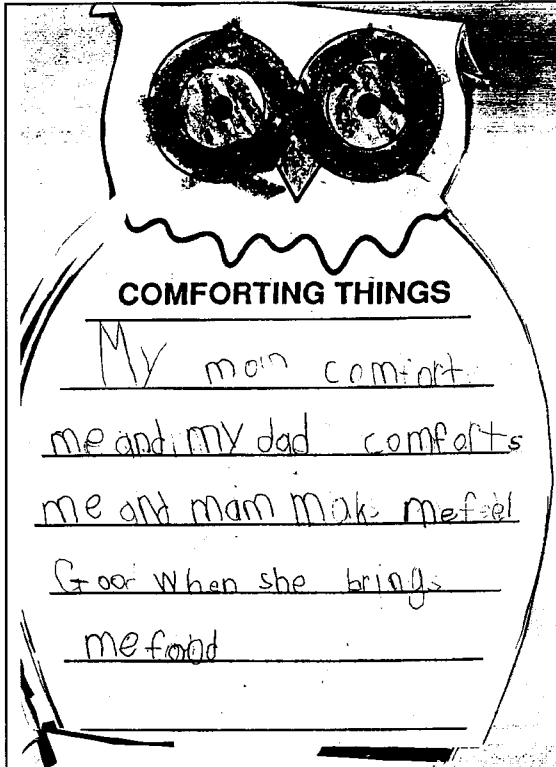 COMFORTING THINGS
My mom comfort
me and my dad comforts
me and mam mak mefeel
Good when she brings
me foood